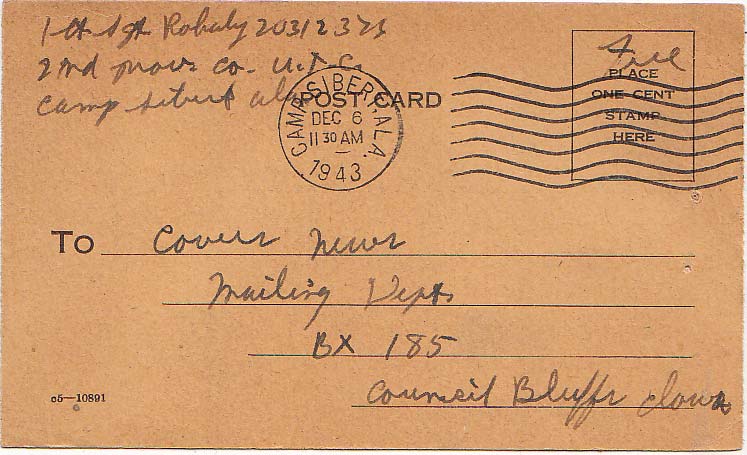 1st Sgt Robaly 20312373
2nd prov. co. U.T.C.
Camp Sibert ala
POST CARD
CAMP SIBERT, ALA.
DEC 6
11 30 AM
1943
Free
PLACE
ONE CENT
STAMP
HERE
To Covers News
Mailing Dept
BX 185
Council Bluffs Iowa
c5—10891